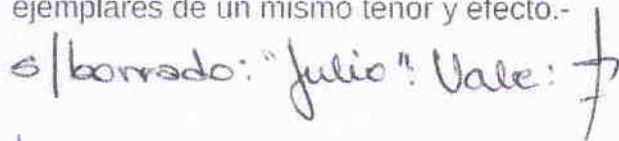 ejemplares de un mismo tenor y efecto.-
s/borrado: "Julio": Vale: